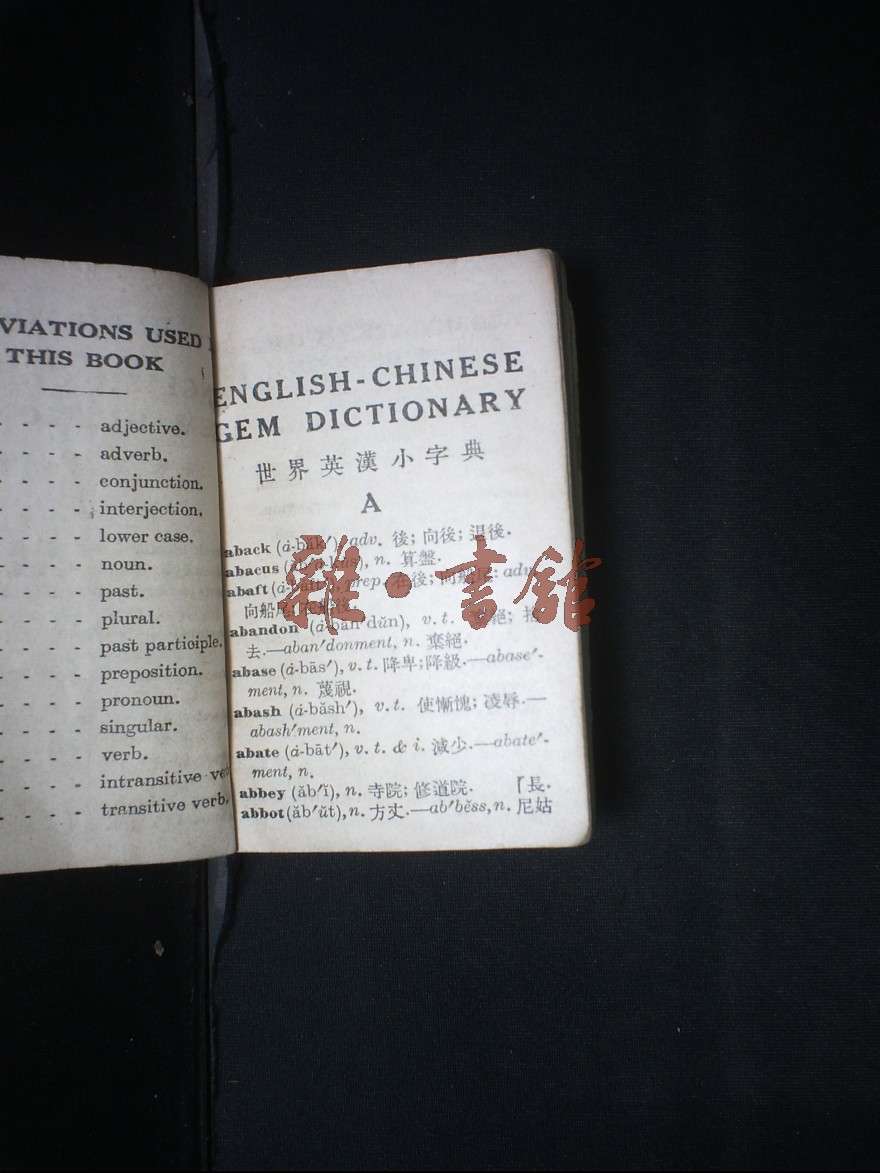 VIATIONS USED
THIS BOOK
- - - - adjective.
- - - - adverb.
- - - - conjunction.
- - - - interjection.
- - - - lower case.
- - - - noun.
- - - - past.
- - - - plural.
- - - - past participle.
- - - - preposition.
- - - - pronoun.
- - - - singular.
- - - - verb.
- - - - intransitive ver
- - - - transitive verb.
ENGLISH-CHINESE
GEM DICTIONARY
世界英漢小字典
A
aback (ȧ-băk′), adv. 後; 向後; 退後.
abacus n. 算盤.
abaft prep. 在後; 向船尾. adv.
向船尾; 後.
abandon (ȧ-băn′dŭn), v. t. 絕;
去.—aban′donment, n. 棄絕.
abase (ȧ-bās′), v. t. 降卑; 降級.—abase′-
ment, n. 蔑視.
abash (ȧ-băsh′), v. t. 使慚愧; 凌辱.—
abash′ment, n.
abate (ȧ-bāt′), v. t. & i. 減少.—abate′-
ment, n.
abbey (ăb′ĭ), n. 寺院; 修道院. 「長.
abbot (ăb′ŭt), n. 方丈.—ab′bĕss, n. 尼姑
雜·書館